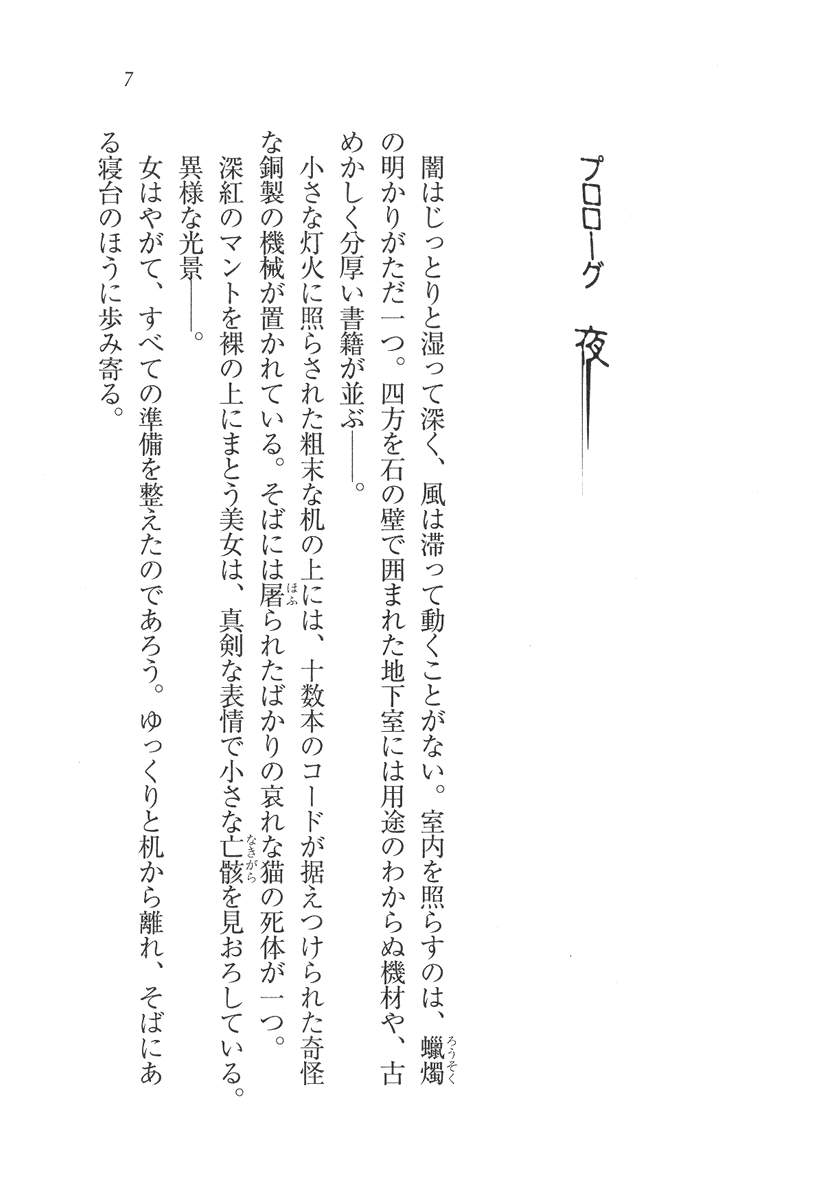 7
プロローグ 夜
闇はじっとりと湿って深く、風は滞って動くことがない。室内を照らすのは、蠟燭
の明かりがただ一つ。四方を石の壁で囲まれた地下室には用途のわからぬ機材や、古
めかしく分厚い書籍が並ぶ――。
小さな灯火に照らされた粗末な机の上には、十数本のコードが据えつけられた奇怪
な銅製の機械が置かれている。そばには屠られたばかりの哀れな猫の死体が一つ。
深紅のマントを裸の上にまとう美女は、真剣な表情で小さな亡骸を見おろしている。
異様な光景――。
女はやがて、すべての準備を整えたのであろう。ゆっくりと机から離れ、そばにあ
る寝台のほうに歩み寄る。
ろうそく
ほふ
なきがら